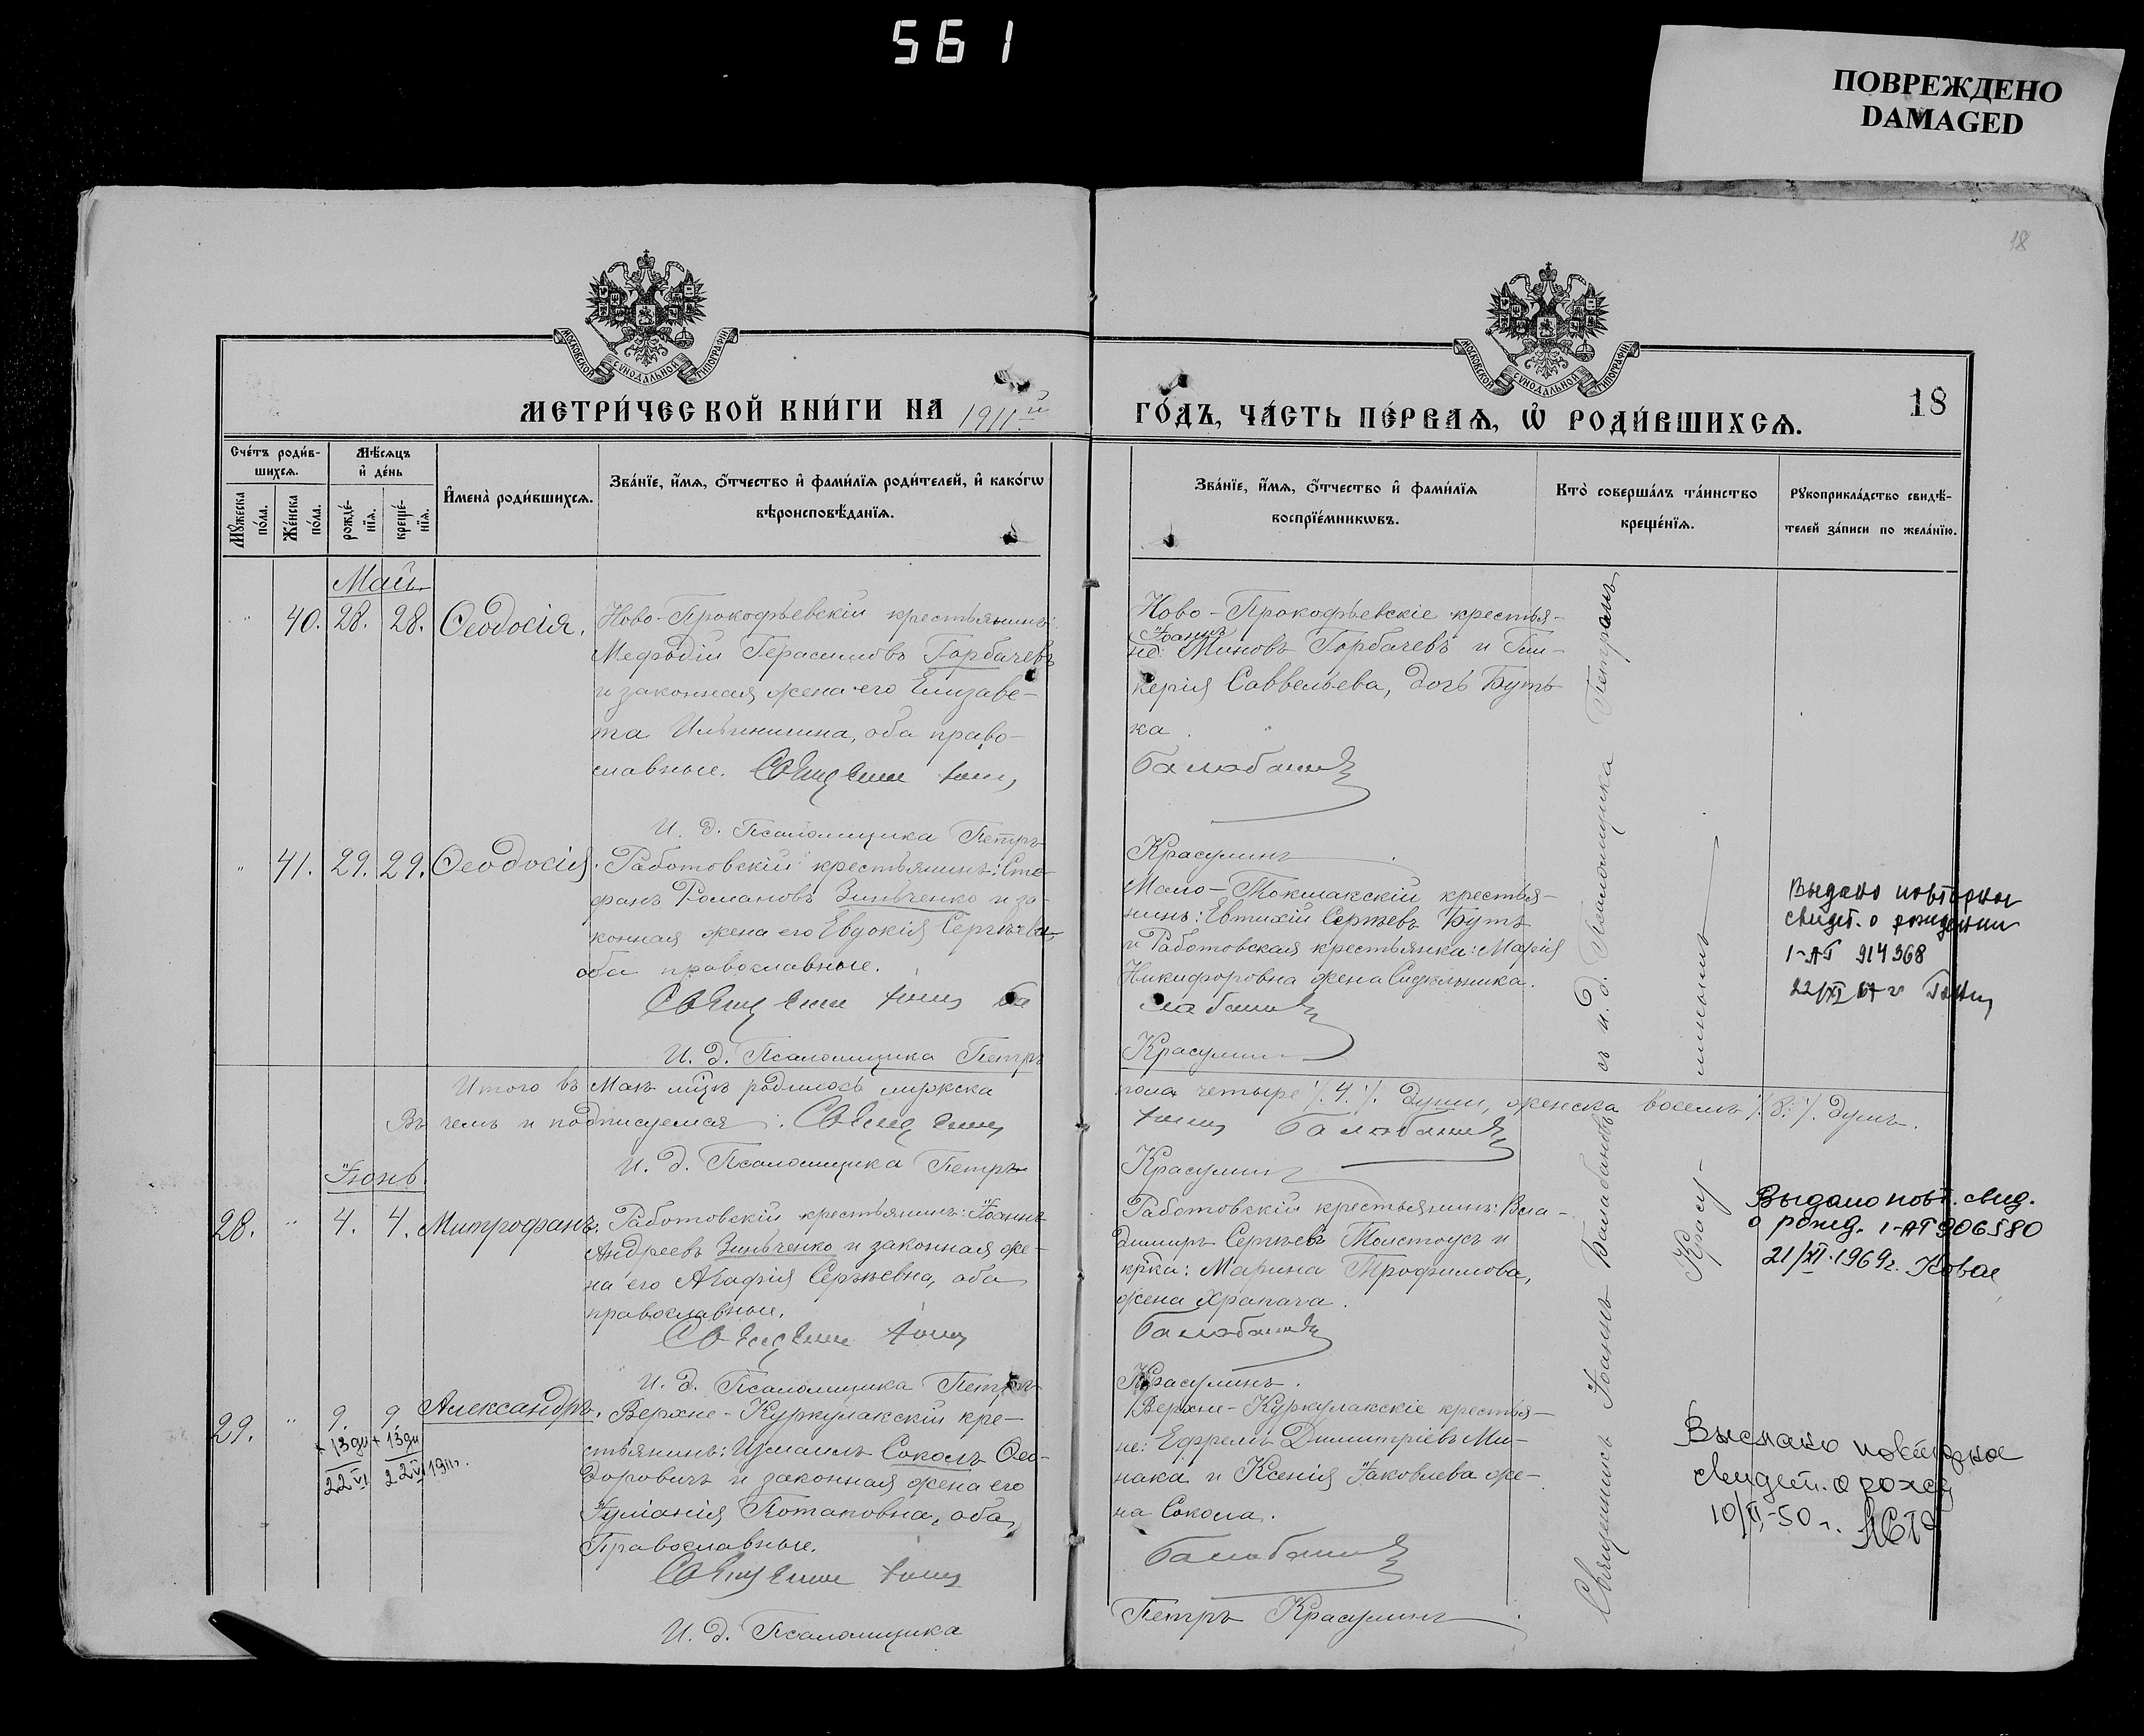 561
ПОВРЕЖДЕНО
DAMAGED
18
МОСКОВСКОЙ СѴНОДАЛЬНОЙ ТИПОГРАФІИ
МОСКОВСКОЙ СѴНОДАЛЬНОЙ ТИПОГРАФІИ
МЕТРИ́ЧЕСКОЙ КНИ́ГИ НА 1911й
ГО́ДЪ, ЧА́СТЬ ПЕ́РВАѦ, Ѡ҆ РОДИ́ВШИХСѦ.
18
Сче́тъ роди́в-
шихсѧ.
Мꙋ́жеска
по́ла.
Же́нска
по́ла.
Мѣ́сѧцъ
и҆ де́нь
рожде́-
нїѧ.
креще́-
нїѧ.
И҆мена̀ роди́вшихсѧ.
Зва́нїе, и҆́мѧ, ѻ҆́тчество и҆ фами́лїѧ роди́телей, и҆ како́гѡ
вѣроисповѣ́данїѧ.
Зва́нїе, и҆́мѧ, ѻ҆́тчество и҆ фами́лїѧ
воспрїе́мникѡвъ.
Кто̀ соверша́лъ та́инство
креще́нїѧ.
Рꙋкоприкла́дство свидѣ́-
телей за́писи по жела́нїю.
Май.
" 40. 28. 28. Ѳеодосія.
Ново-Прокофьевскій крестьянинъ:
Мефодій Герасимовъ Горбачевъ
и законная жена его Елизаве-
та Ильинишна, оба право-
славные. Священникъ Іоаннъ
И. д. Псаломщика Петръ
Ново-Прокофьевскіе крестья-
не: Іоаннъ Миновъ Горбачевъ и Гли-
керія Саввельева, дочь Бутъ
ка.
Балабановъ
Красулинъ
" 41. 29. 29. Ѳеодосія.
Работовскій крестьянинъ: Сте-
фанъ Романовъ Зинченко и за-
конная жена его Евдокія Сергѣева,
оба православные.
Священникъ Іоаннъ Ба
И. д. Псаломщика Петръ
Мало-Токмакскій крестья-
нинъ: Евтихій Сергѣевъ Бутъ
и Работовская крестьянка: Марія
Никифоровна жена Сидельника.
лабановъ
Красулинъ
Выдано повторное
свидет. о рождении
1-АП 914368
22/XI 67 г
Итого въ Маѣ мѣсяцѣ родилось мужска
пола четыре /.4./. души, женска восемь /.8./. душъ.
Въ чемъ и подписуемся: Священникъ
Іоаннъ Балабановъ
И. д. Псаломщика Петръ
Красулинъ
Іюнь.
28. " 4. 4. Митрофанъ.
Работовскій крестьянинъ: Іоаннъ
Андреевъ Зинченко и законная же-
на его Агафія Сергѣевна, оба
православные.
Священникъ Іоаннъ
И. д. Псаломщика Петръ
Работовскій крестьянинъ: Вла-
димиръ Сергѣевъ Толстоусъ и
крка: Марина Трофимова,
жена Храпача.
Балабановъ
Красулинъ.
Выдано повт. свид.
о рожд. 1-АП 906580
21/XI.1969г.
29. " 9. 9. Александръ.
+ 13 дн + 13 дн
22 VI 22 VI 1911г.
Верхне-Куркулакскій кре-
стьянинъ: Измаилъ Соколъ Ѳео-
доровичъ и законная жена его
Іуліанія Потаповна, оба
Православные.
Священникъ Іоаннъ
И. д. Псаломщика
Верхне-Куркулакскіе крестья-
не: Ефремъ Димитріевъ Ми-
нака и Ксенія Іаковлева же-
на Сокола.
Балабановъ
Петръ Красулинъ
Выслано повторное
свидет. о рожд
10/II-50 г.
Священникъ Іоаннъ Балабановъ съ и. д. Псаломщика Петромъ
Красу-линымъ